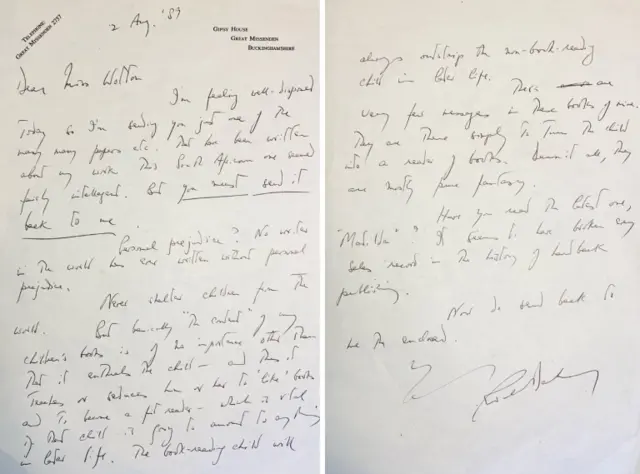 TELEPHONE
GREAT MISSENDEN 2757
2 Aug. '89
GIPSY HOUSE
GREAT MISSENDEN
BUCKINGHAMSHIRE
Dear Miss Wotton
I'm feeling well-disposed
Today so I'm sending you just one of the
many many papers etc. that has been written
about my work. This South African one seemed
fairly intelligent. But you must send it
back to me.
Personal prejudice? No writer
in the world has ever written without personal
prejudice.
Never shelter children from the
world. But basically "the content" of my
children's books is of no importance other than
that it enthralls the child – and thus it
teaches or seduces him or her to 'like' books
and to become a fit reader – which is vital
if that child is going to amount to anything
in later life. The book-reading child will
always outstrip the non-book-reading
child in later life. There are
very few messages in these books of mine.
They are there simply to turn the child
into a reader of books. Damn it all, they
are mostly pure fantasy.
Have you read the latest one,
"Matilda"? It seems to have broken every
sales record in the history of hardback
publishing.
Now do send back to
me the enclosed.
Roald Dahl